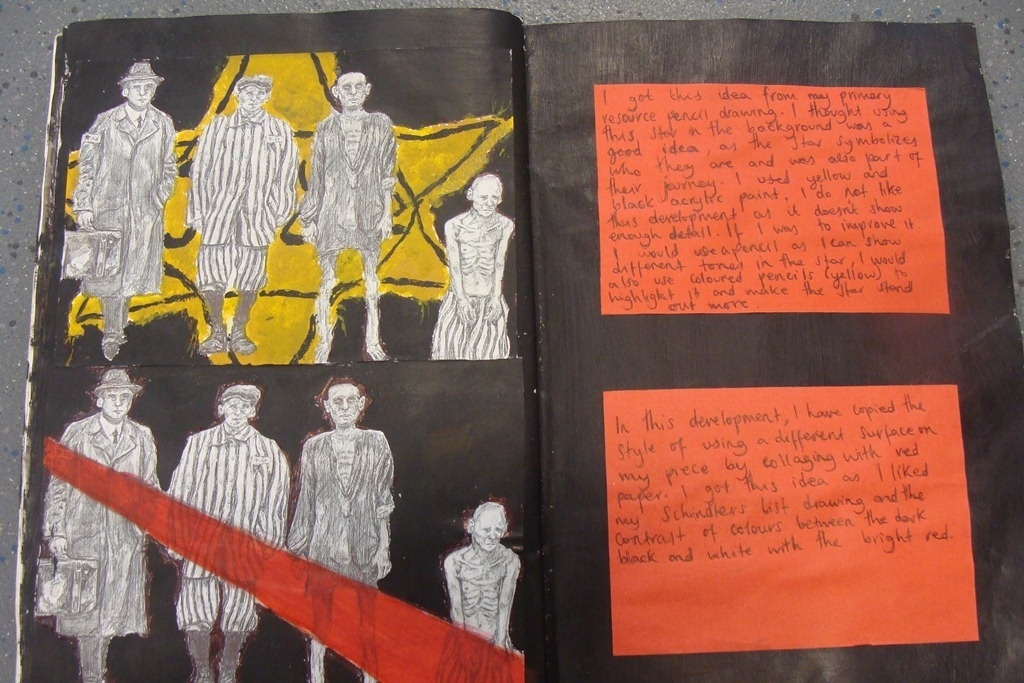 I got this idea from my primary
resource pencil drawing. I thought using
this star in the background was a
good idea, as the star symbolizes
who they are and was also part of
their journey. I used yellow and
black acrylic paint. I do not like
this development as it doesn't show
enough detail. If I was to improve it
I would use a pencil as I can show
different tones in the star, I would
also use coloured pencils (yellow) to
highlight it and make the star stand
out more.
In this development, I have copied the
style of using a different surface on
my piece by collaging with red
paper. I got this idea as I liked
my Schindlers list drawing and the
contrast of colours between the dark
black and white with the bright red.